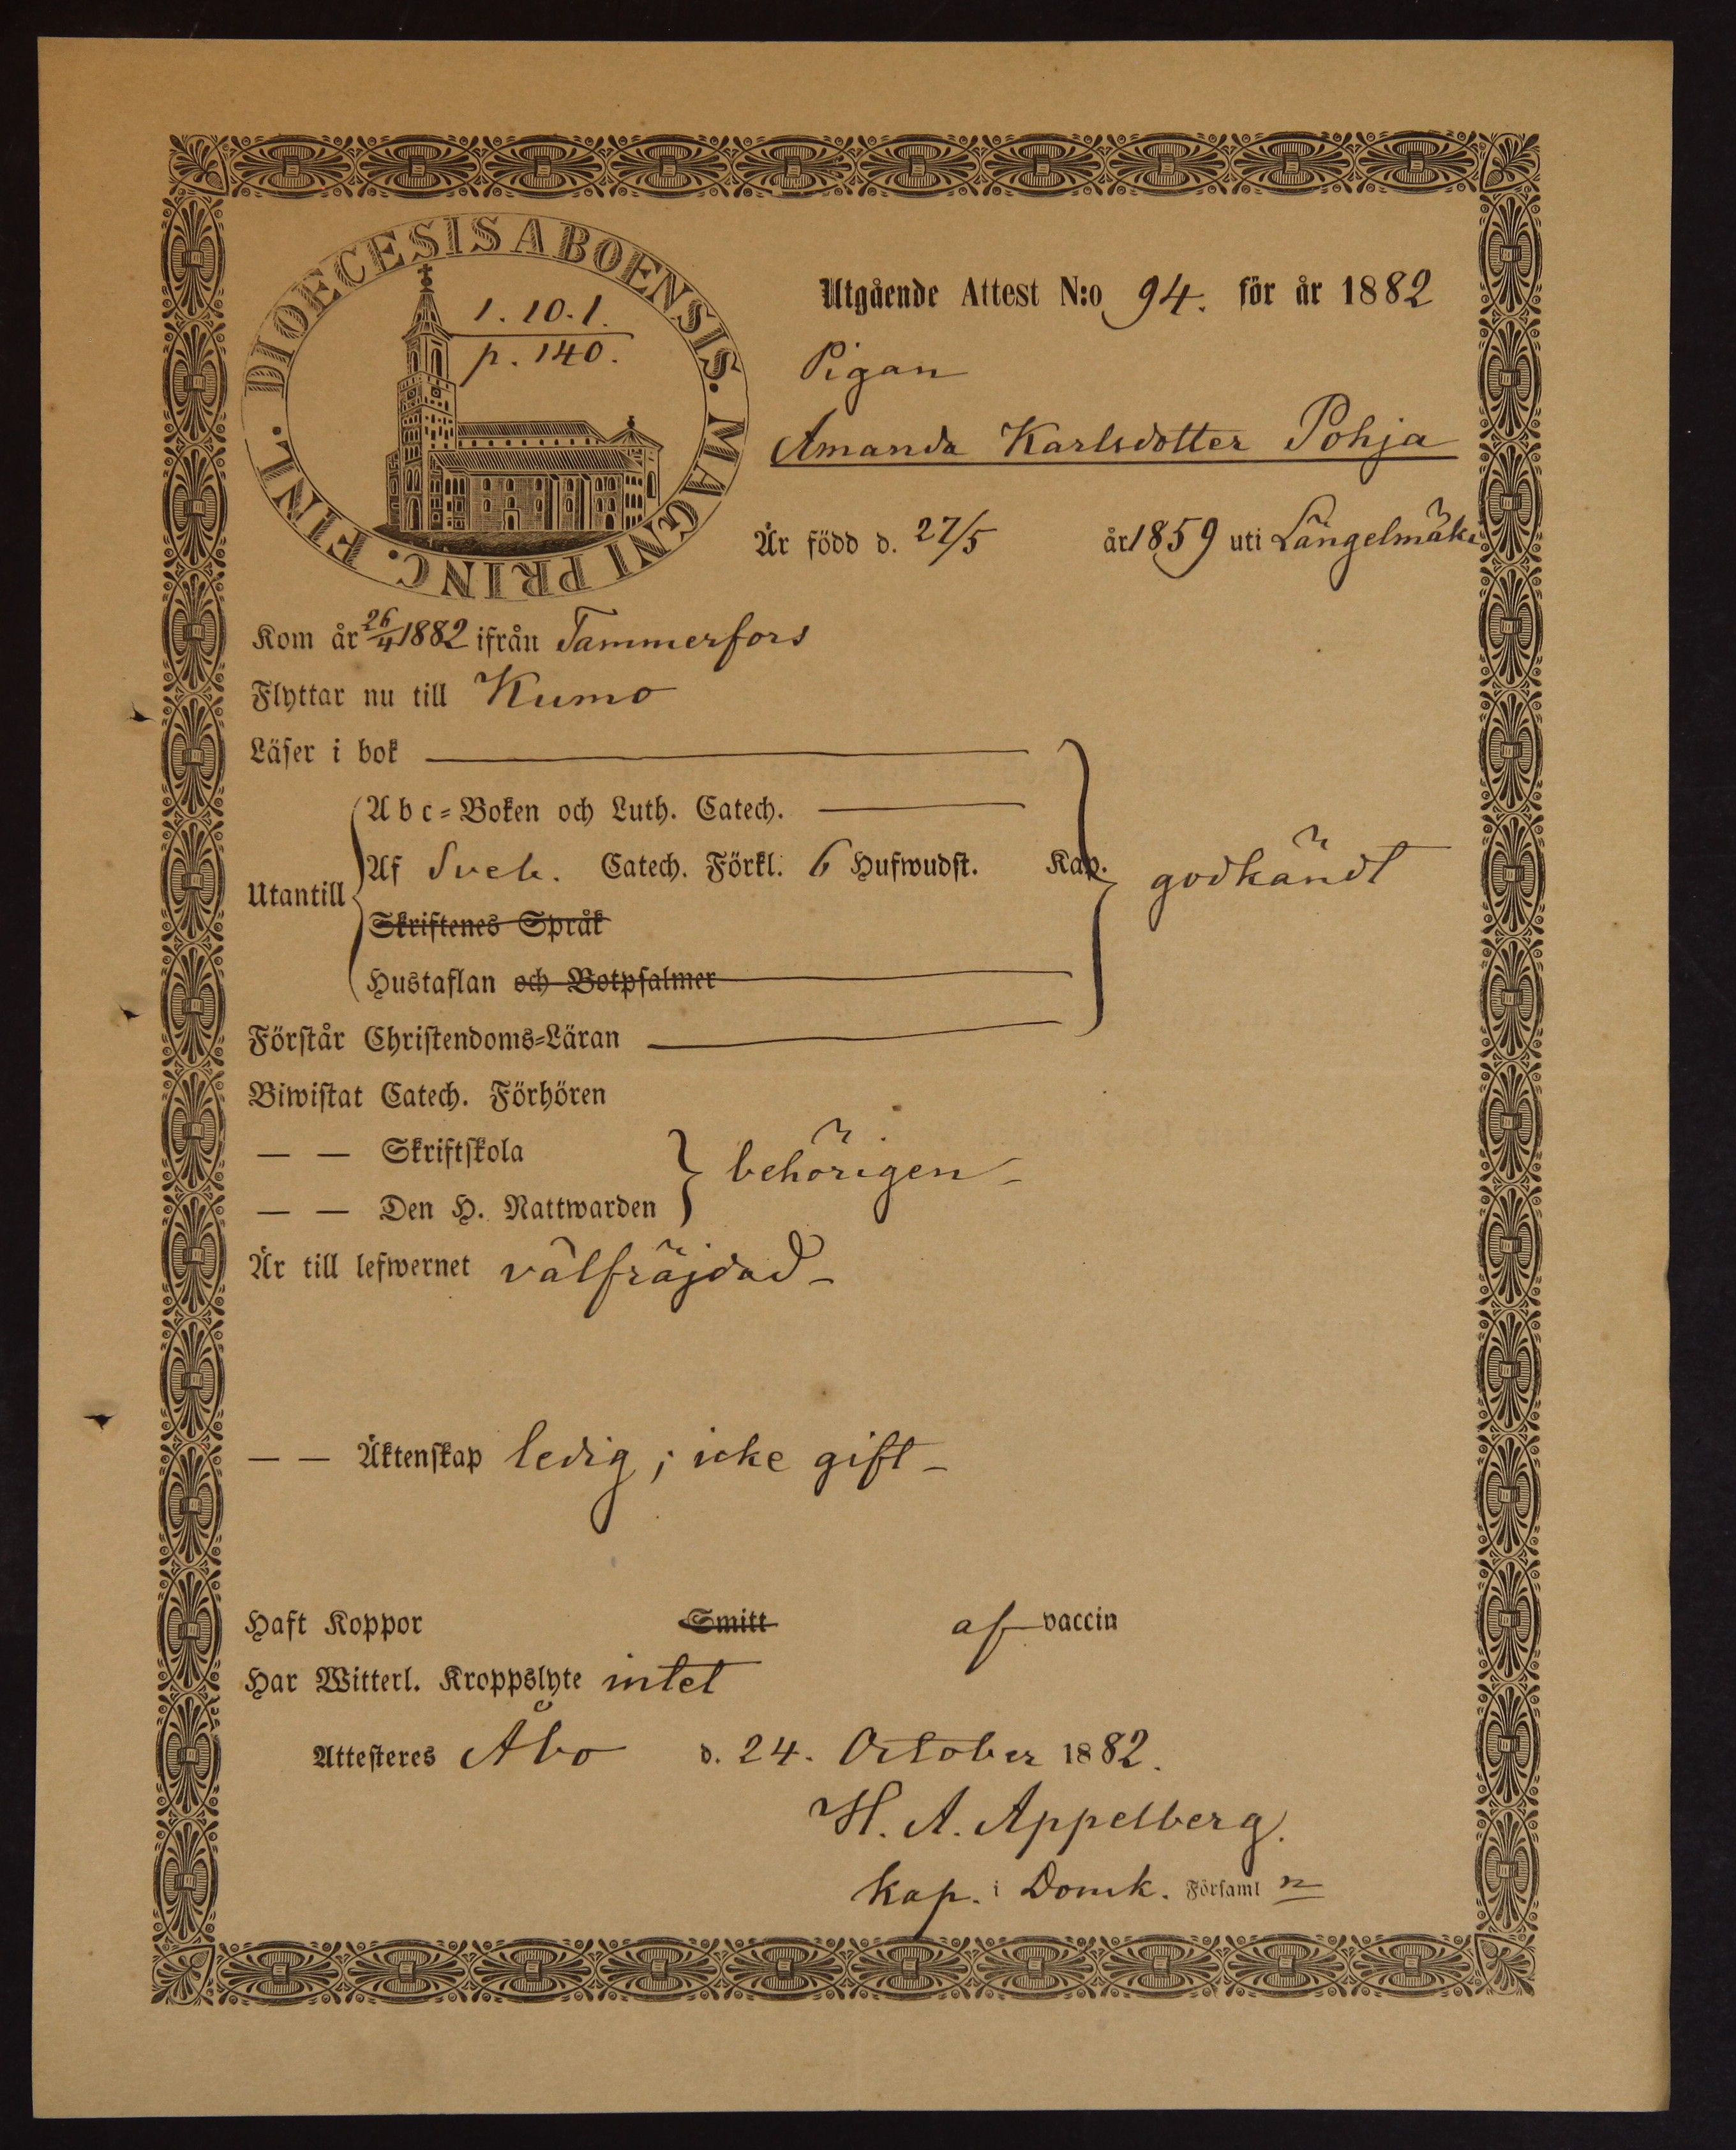 DIOECESIS ABOENSIS. MAGNI PRINC. FINL.
1. 10. 1.
p. 140.
Utgående Attest N:o 94. för år 1882
Pigan
Amanda Karlsdotter Pohja
Är född d. 27/5 år 1859 uti Längelmäki
Kom år 26/4 1882 ifrån Tammerfors
Flyttar nu till Kumo
Läser i bok
Abc-Boken och Luth. Catech.
Utantill
Af Sveb. Catech. Förkl. 6 Hufwudst. Kap. godkändt
Skriftenes Språk
Hustaflan och Botpsalmer
Förstår Christendoms-Läran
Biwistat Catech. Förhören
— — Skriftskola
behörigen
— — Den H. Nattwarden
Är till lefwernet välfräjdad
— — Äktenskap ledig; icke gift
Haft Koppor Smitt af vaccin
Har Witterl. Kroppslyte intet
Attesteres Åbo d. 24. October 1882.
H. A. Appelberg.
Kap. i Domk. Församl n